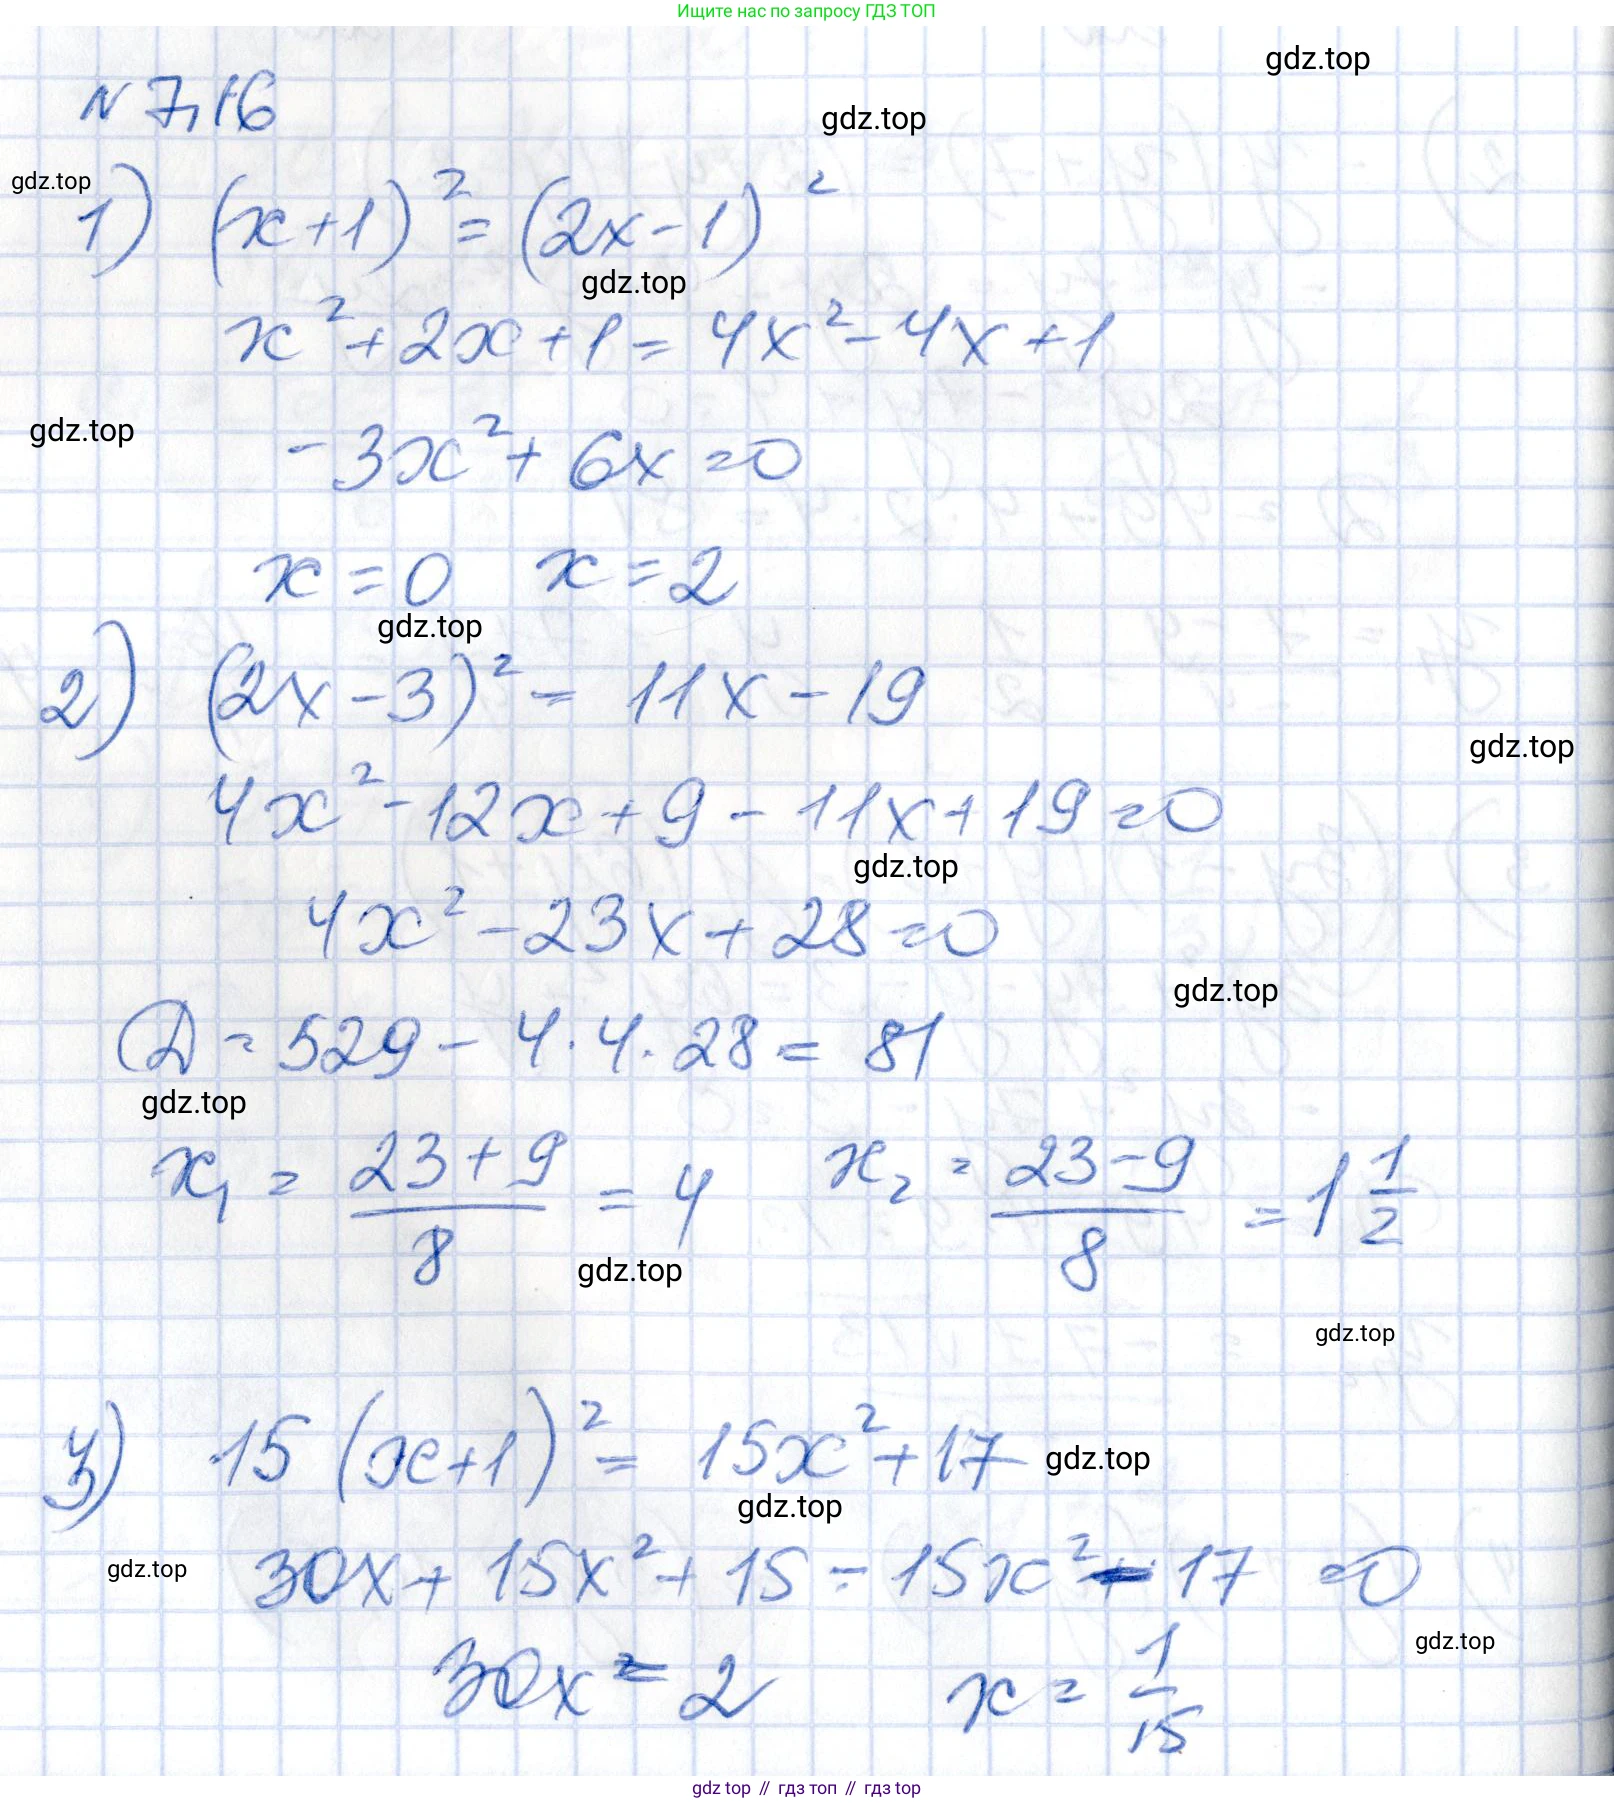 Ищите нас по запросу ГДЗ ТОП
gdz.top
N 7,16
gdz.top
gdz.top
1) (x+1)² = (2x-1)²
gdz.top
x² + 2x + 1 = 4x² - 4x + 1
gdz.top
-3x² + 6x = 0
x = 0 x = 2
gdz.top
2) (2x-3)² = 11x - 19
gdz.top
4x² - 12x + 9 - 11x + 19 = 0
gdz.top
4x² - 23x + 28 = 0
gdz.top
D = 529 - 4·4·28 = 81
gdz.top
x₁ = (23+9)/8 = 4 x₂ = (23-9)/8 = 1 1/2
gdz.top
gdz.top
3) 15(x+1)² = 15x² + 17
gdz.top
gdz.top
gdz.top
30x + 15x² + 15 - 15x² - 17 = 0
gdz.top
30x = 2 x = 1/15
gdz top // гдз топ // гдз top